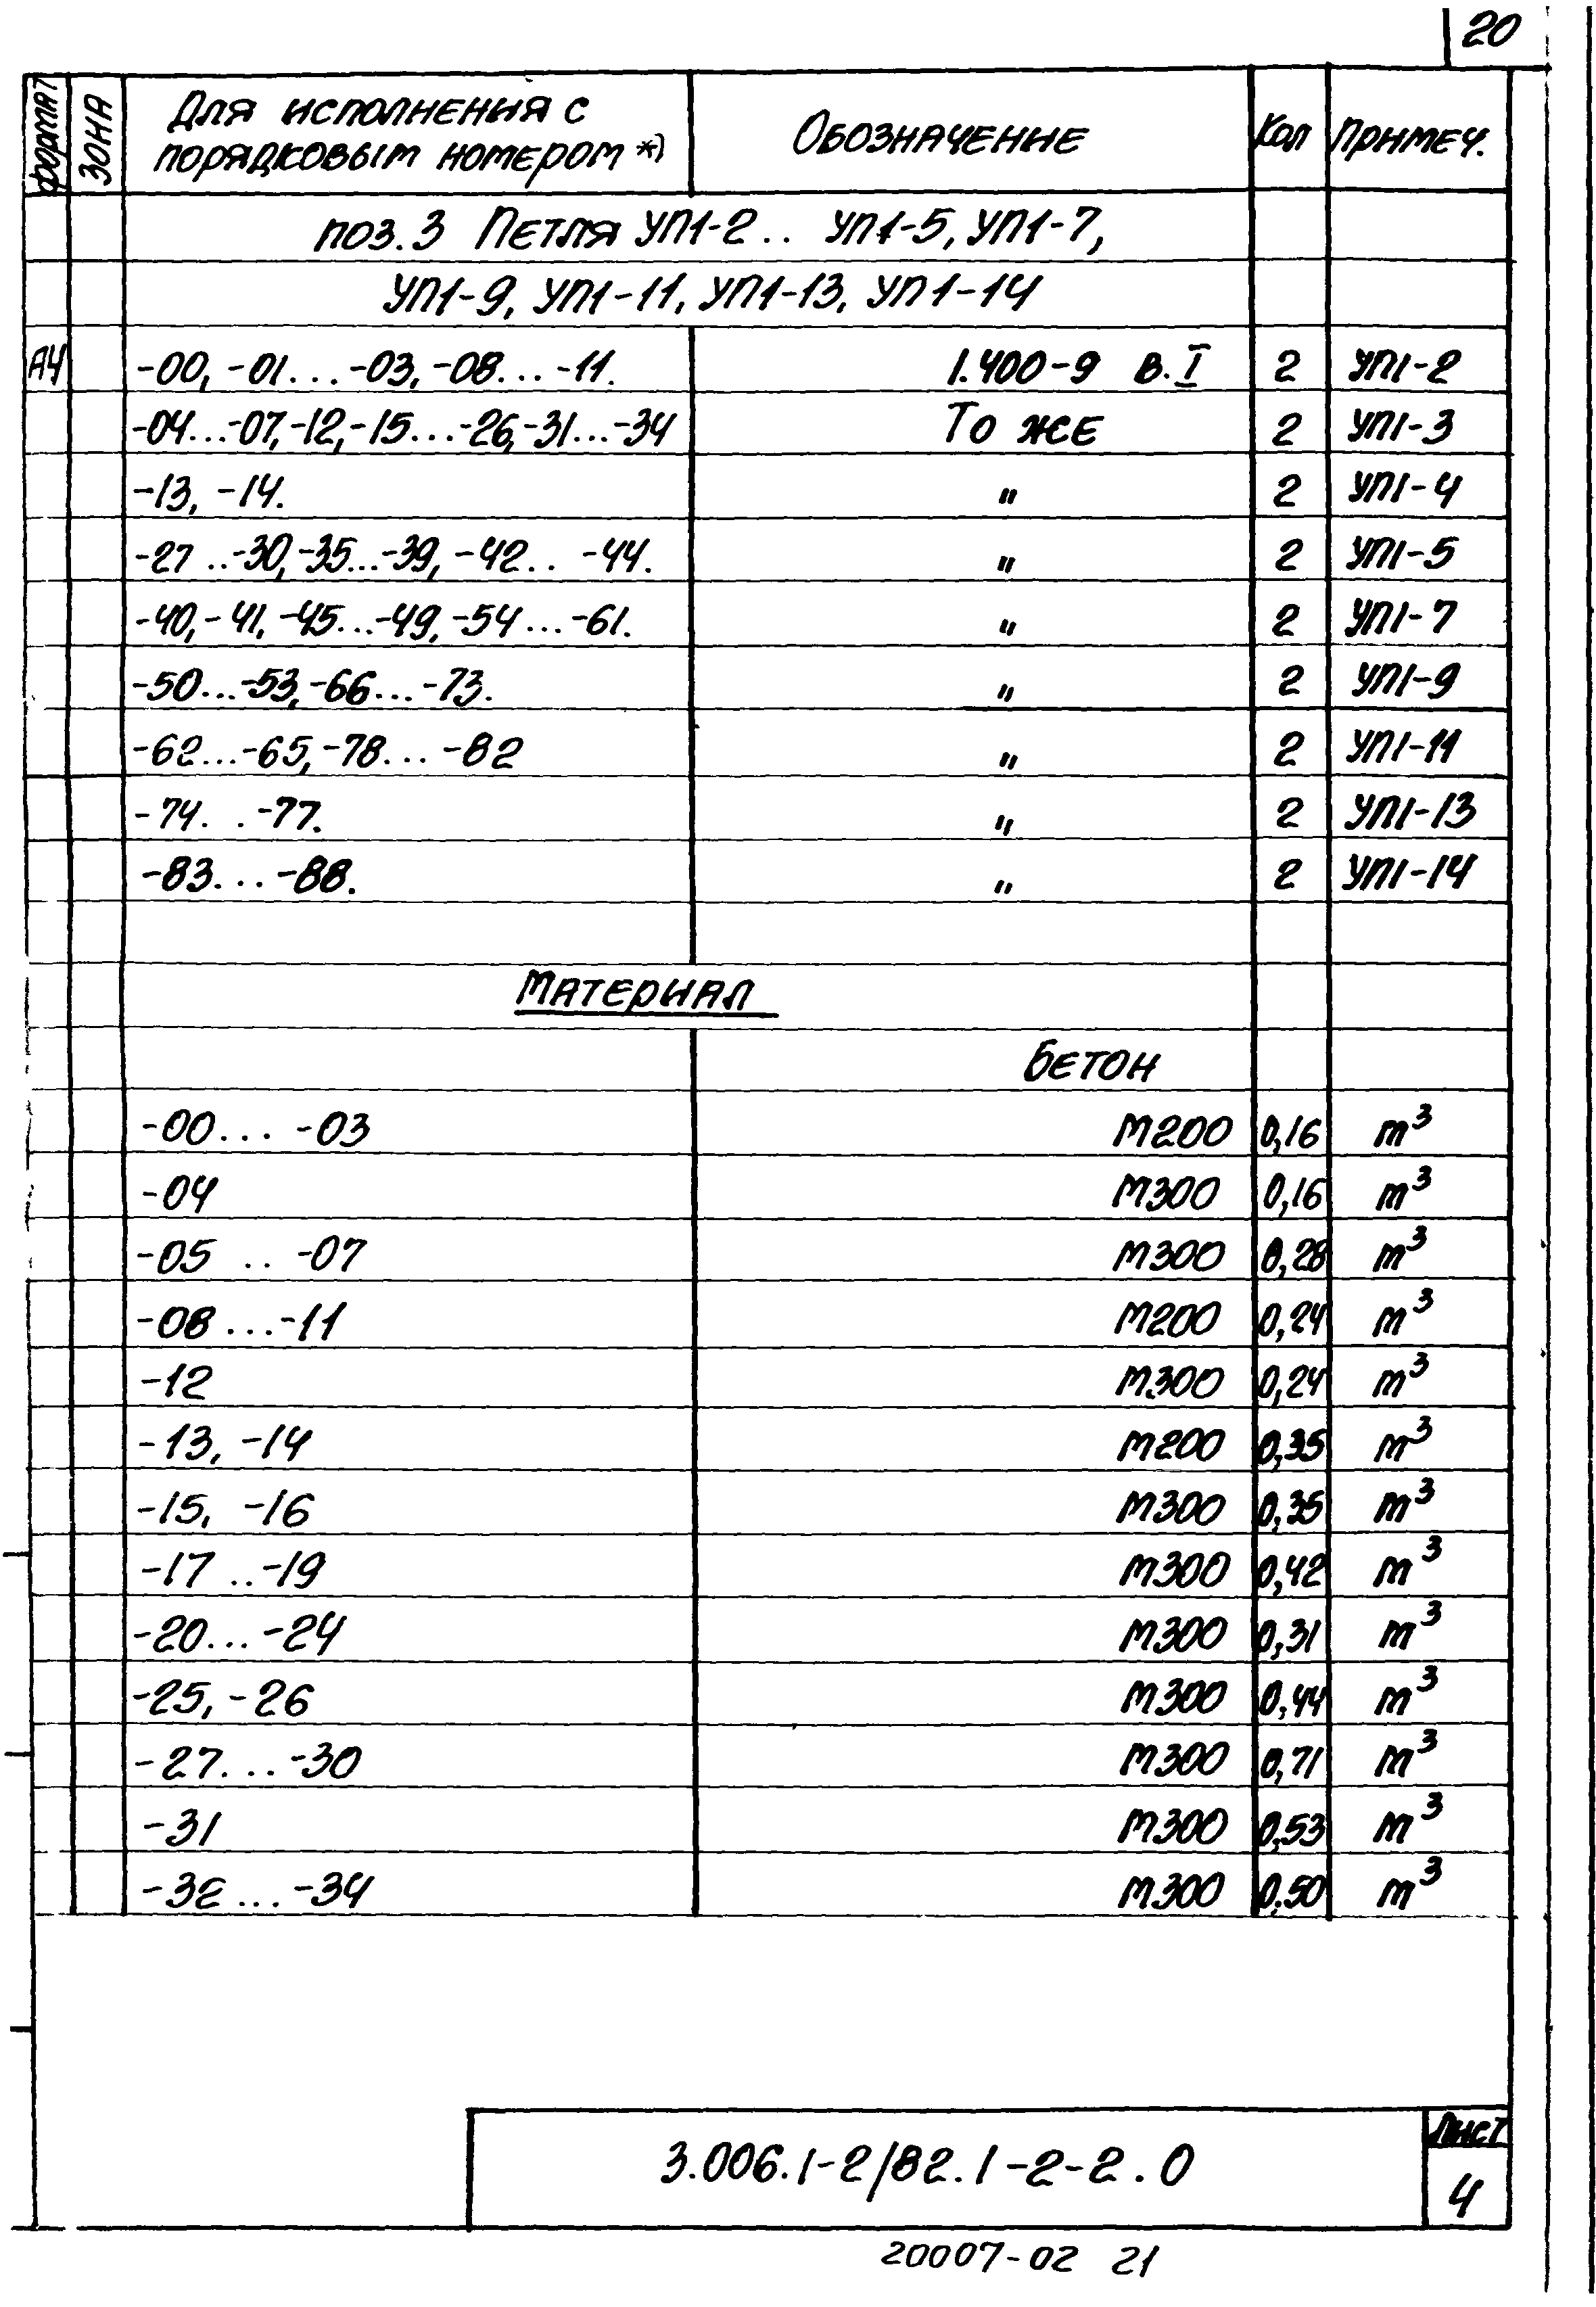 20
Формат Зона Для исполнения с порядковым номером *) Обозначение Кол Примеч.
поз. 3 Петля УП1-2.. УП1-5, УП1-7,
УП1-9, УП1-11, УП1-13, УП1-14
А4 -00, -01...-03, -08...-11. 1.400-9 в. I 2 УП1-2
-04...-07, -12, -15...-26, -31...-34 То же 2 УП1-3
-13, -14. " 2 УП1-4
-27..-30, -35...-39, -42.. -44. " 2 УП1-5
-40, -41, -45...-49, -54...-61. " 2 УП1-7
-50...-53, -66...-73. " 2 УП1-9
-62...-65, -78...-82 " 2 УП1-11
-74. .-77. " 2 УП1-13
-83...-88. " 2 УП1-14
Материал
Бетон
-00...-03 М200 0,16 м³
-04 М300 0,16 м³
-05 .. -07 М300 0,28 м³
-08...-11 М200 0,24 м³
-12 М300 0,24 м³
-13, -14 М200 0,35 м³
-15, -16 М300 0,35 м³
-17..-19 М300 0,42 м³
-20...-24 М300 0,31 м³
-25, -26 М300 0,44 м³
-27...-30 М300 0,71 м³
-31 М300 0,53 м³
-32...-34 М300 0.50 м³
3.006.1-2/82.1-2-2.0
Лист
4
20007-02 21